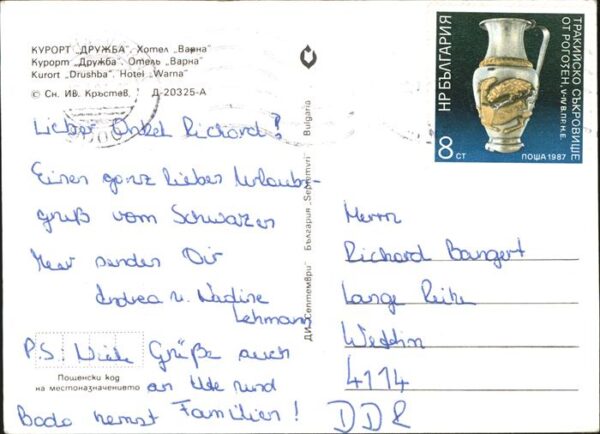 КУРОРТ „ДРУЖБА". Хотел „Варна"
Курорт „Дружба". Отель „Варна"
Kurort „Drushba", Hotel „Warna"
© Сн. ИВ. Кръстев. Д-20325-А
Lieber Onkel Richard!
Einen ganz lieben Urlaubs-
gruß vom Schwarzen
Meer senden Dir
Andrea u. Nadine
Lehmann
P.S. Viele Grüße auch
an Ute und
Bodo nebst Familien!
Пощенски код
на местоназначението
ДИ „Септември" България „Septemvri" Bulgaria
НР БЪЛГАРИЯ
ТРАКИЙСКО СЪКРОВИЩЕ
ОТ РОГОЗЕН, V-IV В.ПР.Н.Е.
8 СТ
ПОЩА 1987
Herrn
Richard Bangert
Lange Reihe
Weddin
4114
DDR